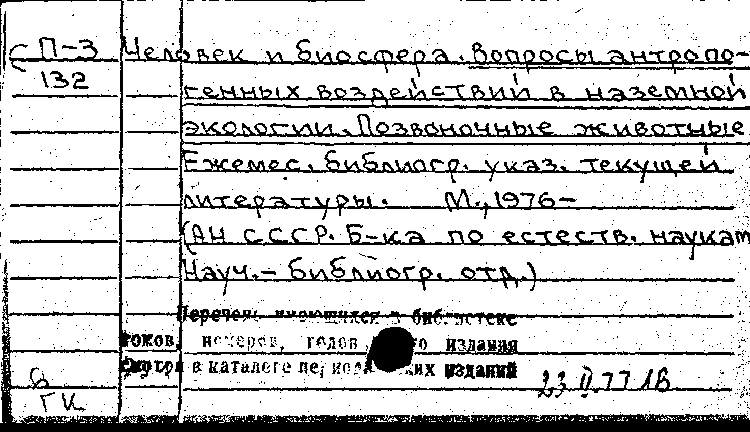 С П-3 Человек и биосфера. Вопросы антропо-
132 генных воздействий в наземной
экологии. Позвоночные животные
Ежемес. библиогр. указ. текущей
литературы. М., 1976-
(АН СССР. Б-ка по естеств. наукам
Науч.- библиогр. отд.)
Перечень имеющихся в библиотеке
томов, номеров, годов издания
смотри в каталоге периодических изданий
23 II 77
ГК